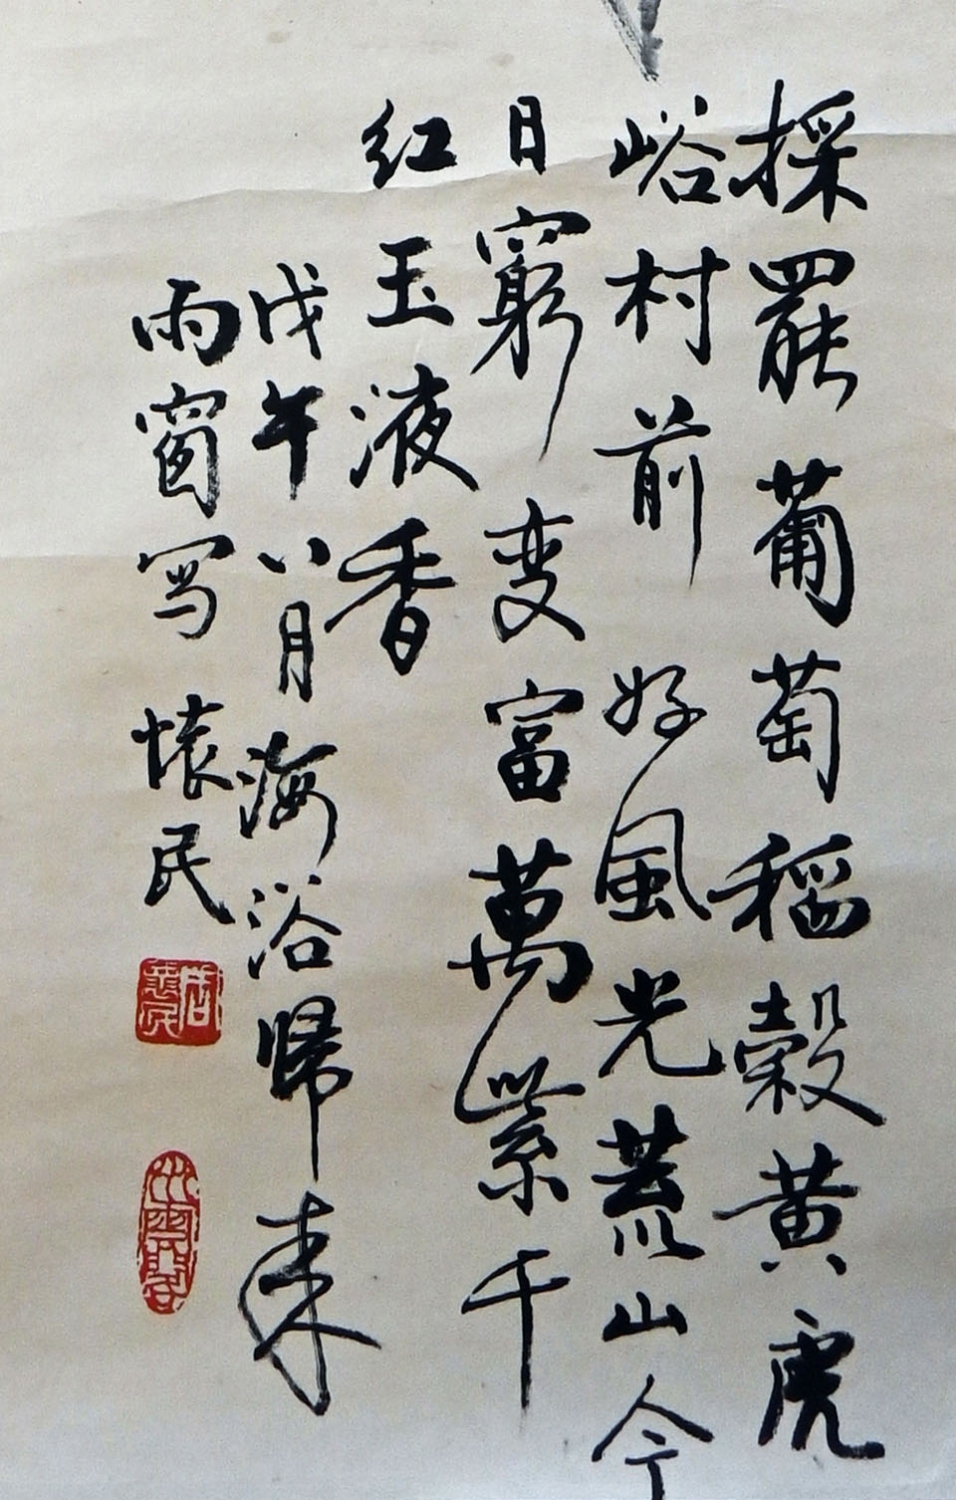 採罷葡萄稻穀黄虎
峪村前好風光荒山今
日窮变富萬紫千
红玉液香
戊午八月海浴歸来
雨窗写懷民
周懷民